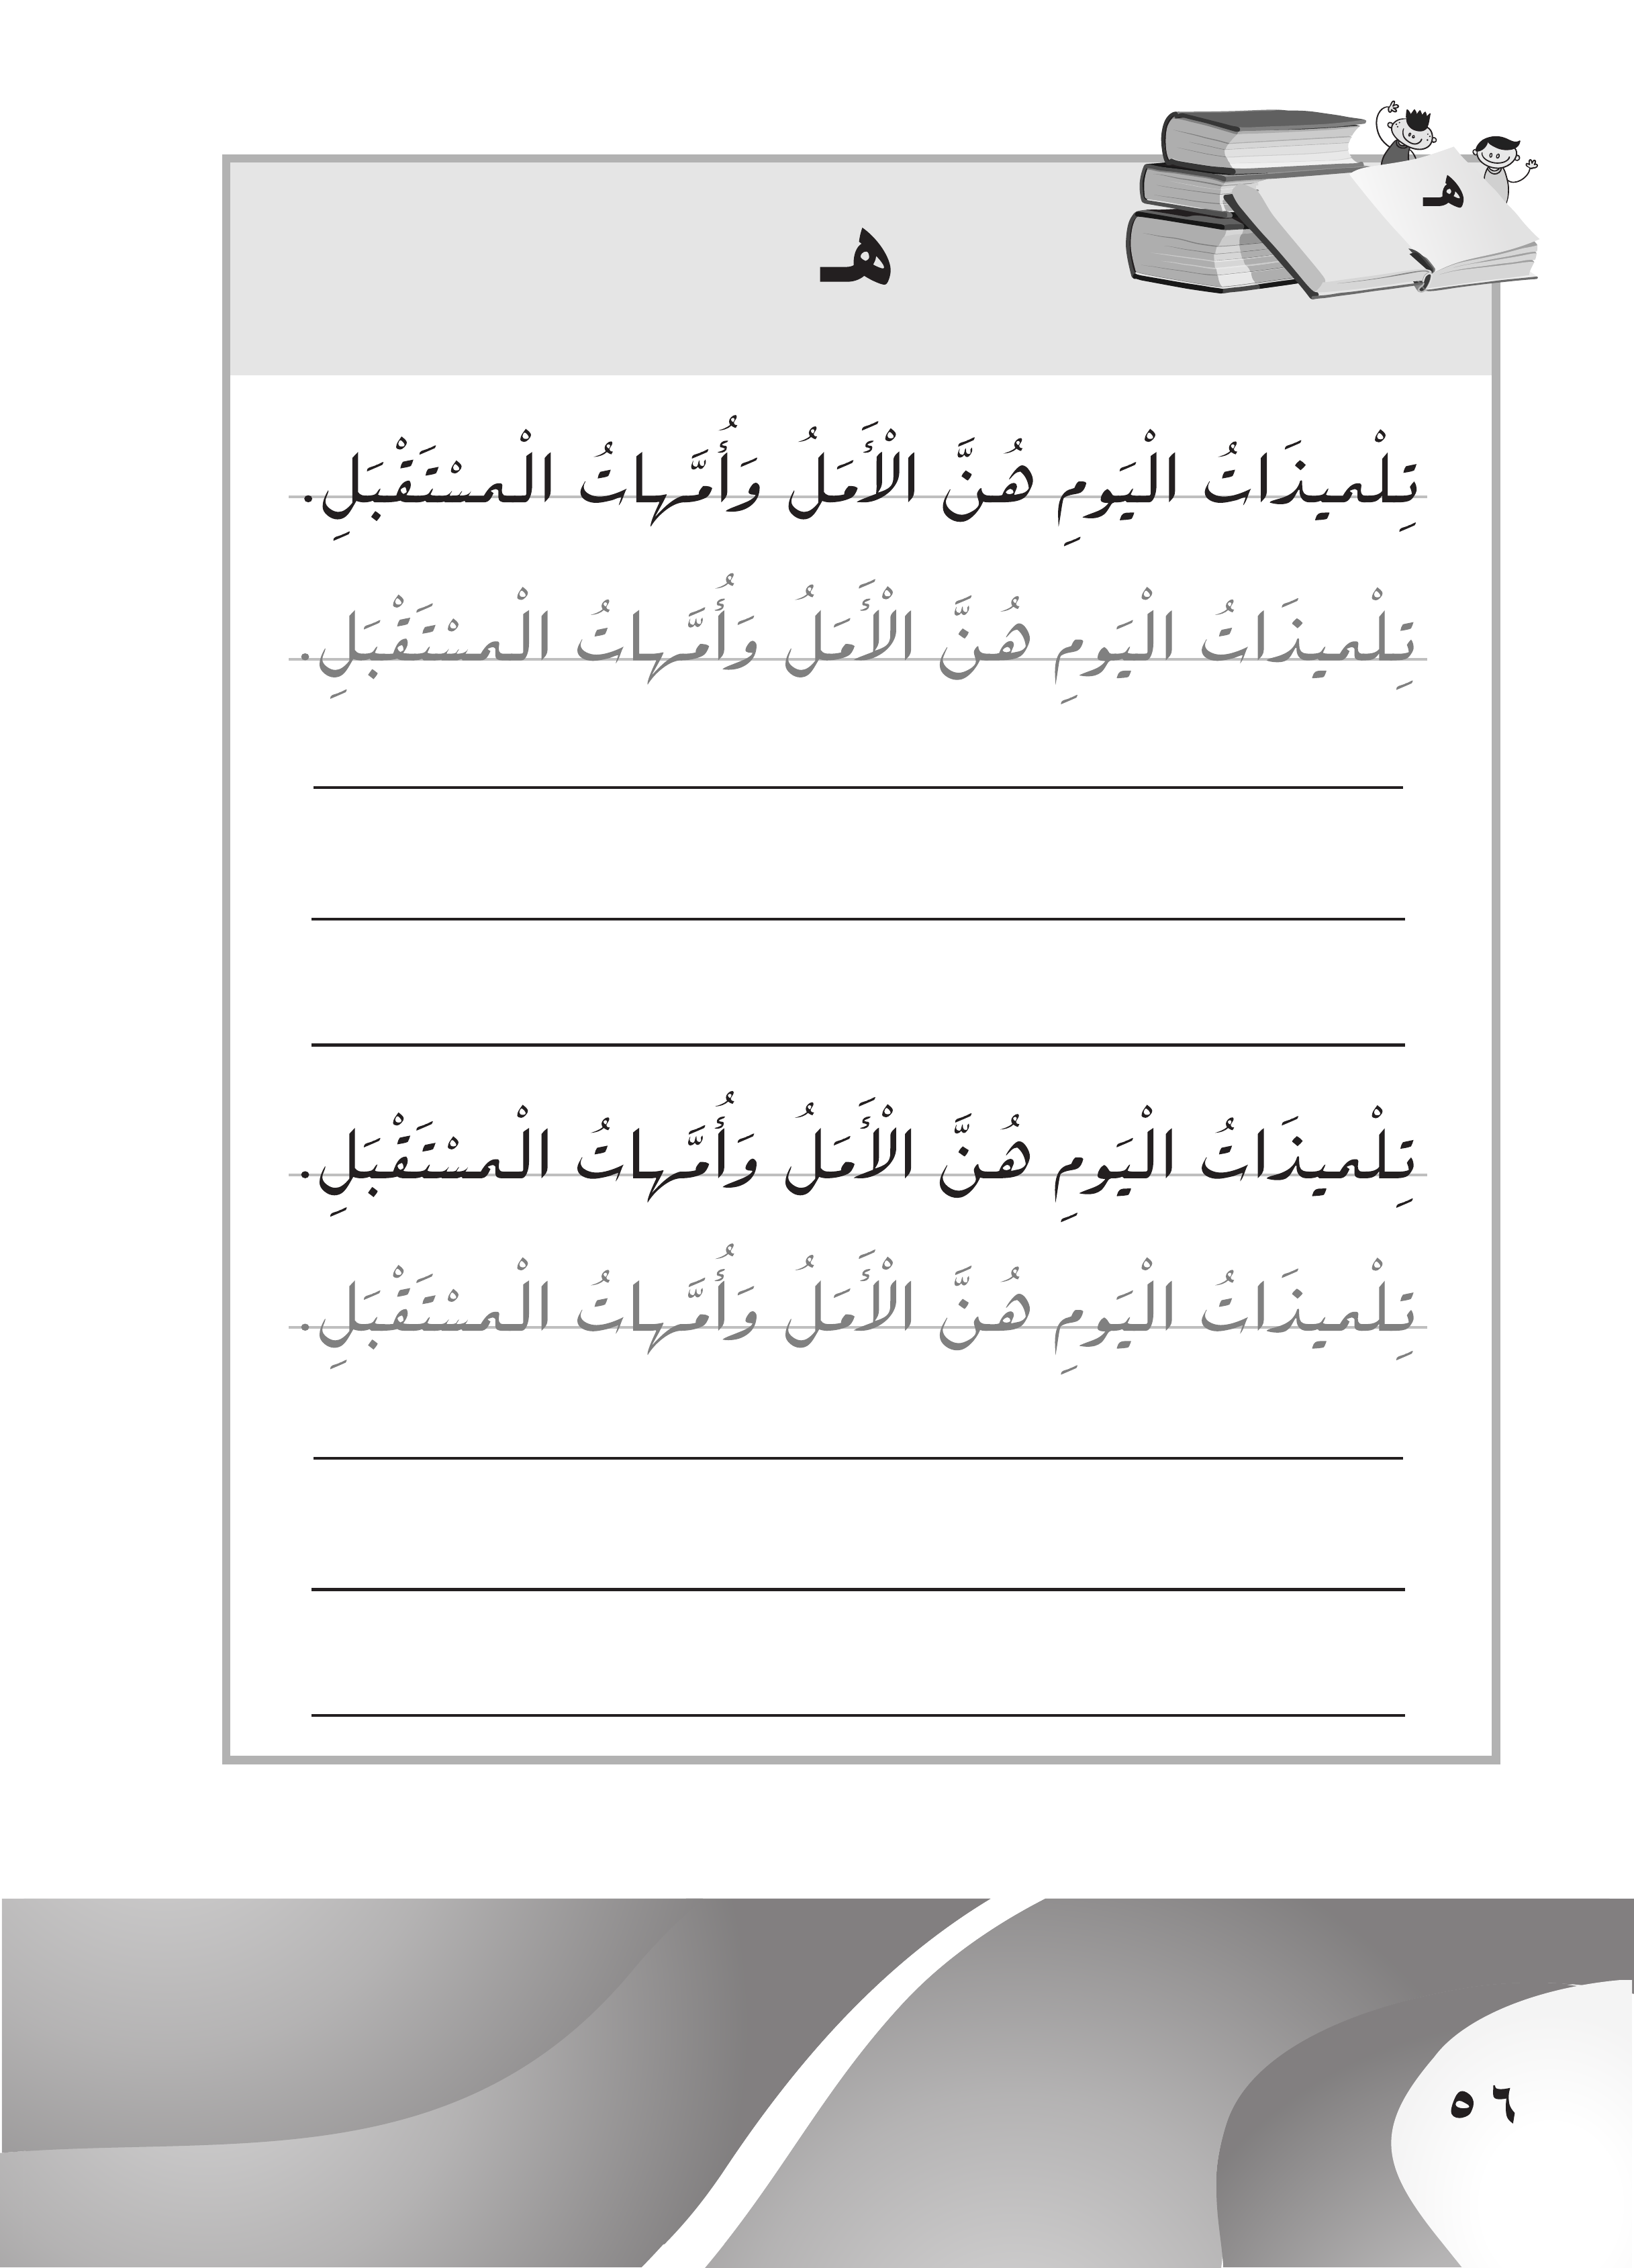 هـ
هـ
تِلْميذَاتُ الْيَومِ هُنَّ الْأَمَلُ وَأُمَّهاتُ الْمسْتَقْبَلِ.
تِلْميذَاتُ الْيَومِ هُنَّ الْأَمَلُ وَأُمَّهاتُ الْمسْتَقْبَلِ.
تِلْميذَاتُ الْيَومِ هُنَّ الْأَمَلُ وَأُمَّهاتُ الْمسْتَقْبَلِ.
تِلْميذَاتُ الْيَومِ هُنَّ الْأَمَلُ وَأُمَّهاتُ الْمسْتَقْبَلِ.
٥٦